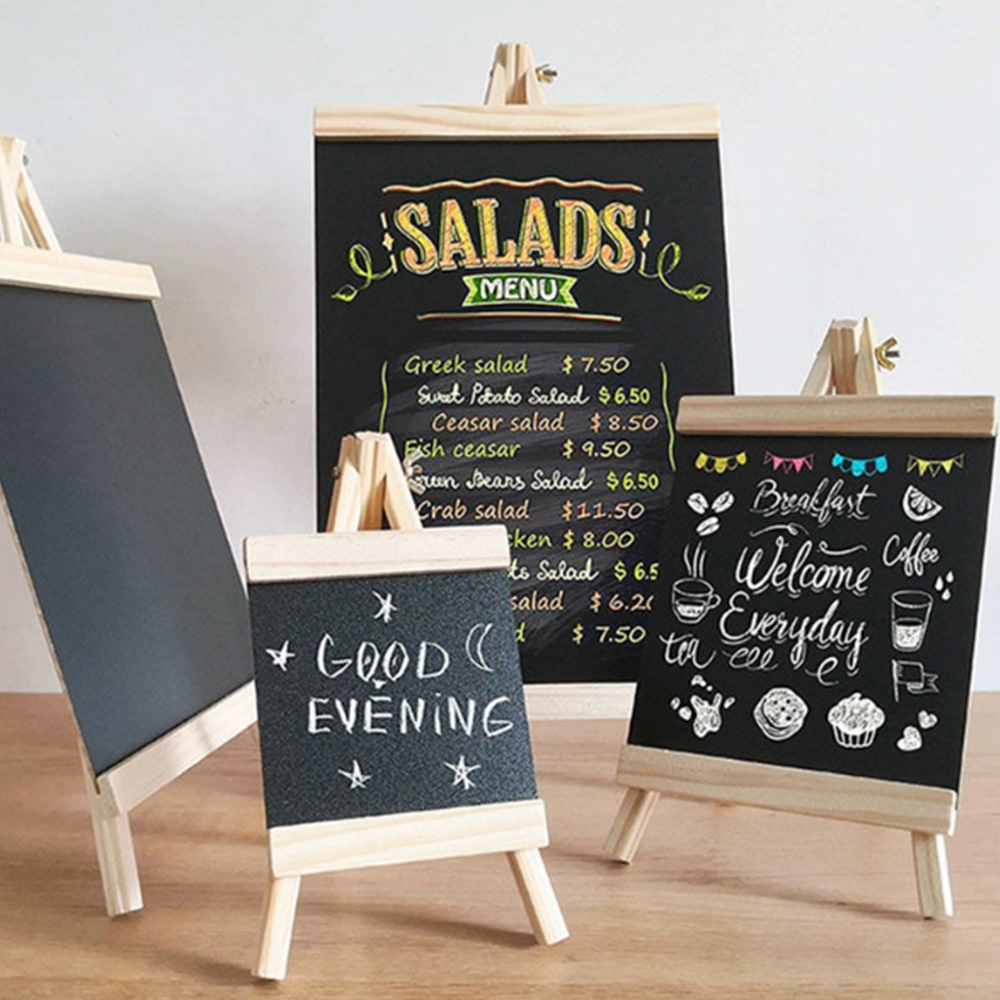 SALADS
MENU
Greek salad $ 7.50
Sweet Potato Salad $ 6.50
Ceasar salad $ 8.50
Fish ceasar $ 9.50
Green Beans Salad $ 6.50
Crab salad $11.50
cken $ 8.00
Salad $ 6.5
salad $ 6.20
d $ 7.50
GOOD
EVENING
Breakfast
Coffee
Welcome
Everyday
tea